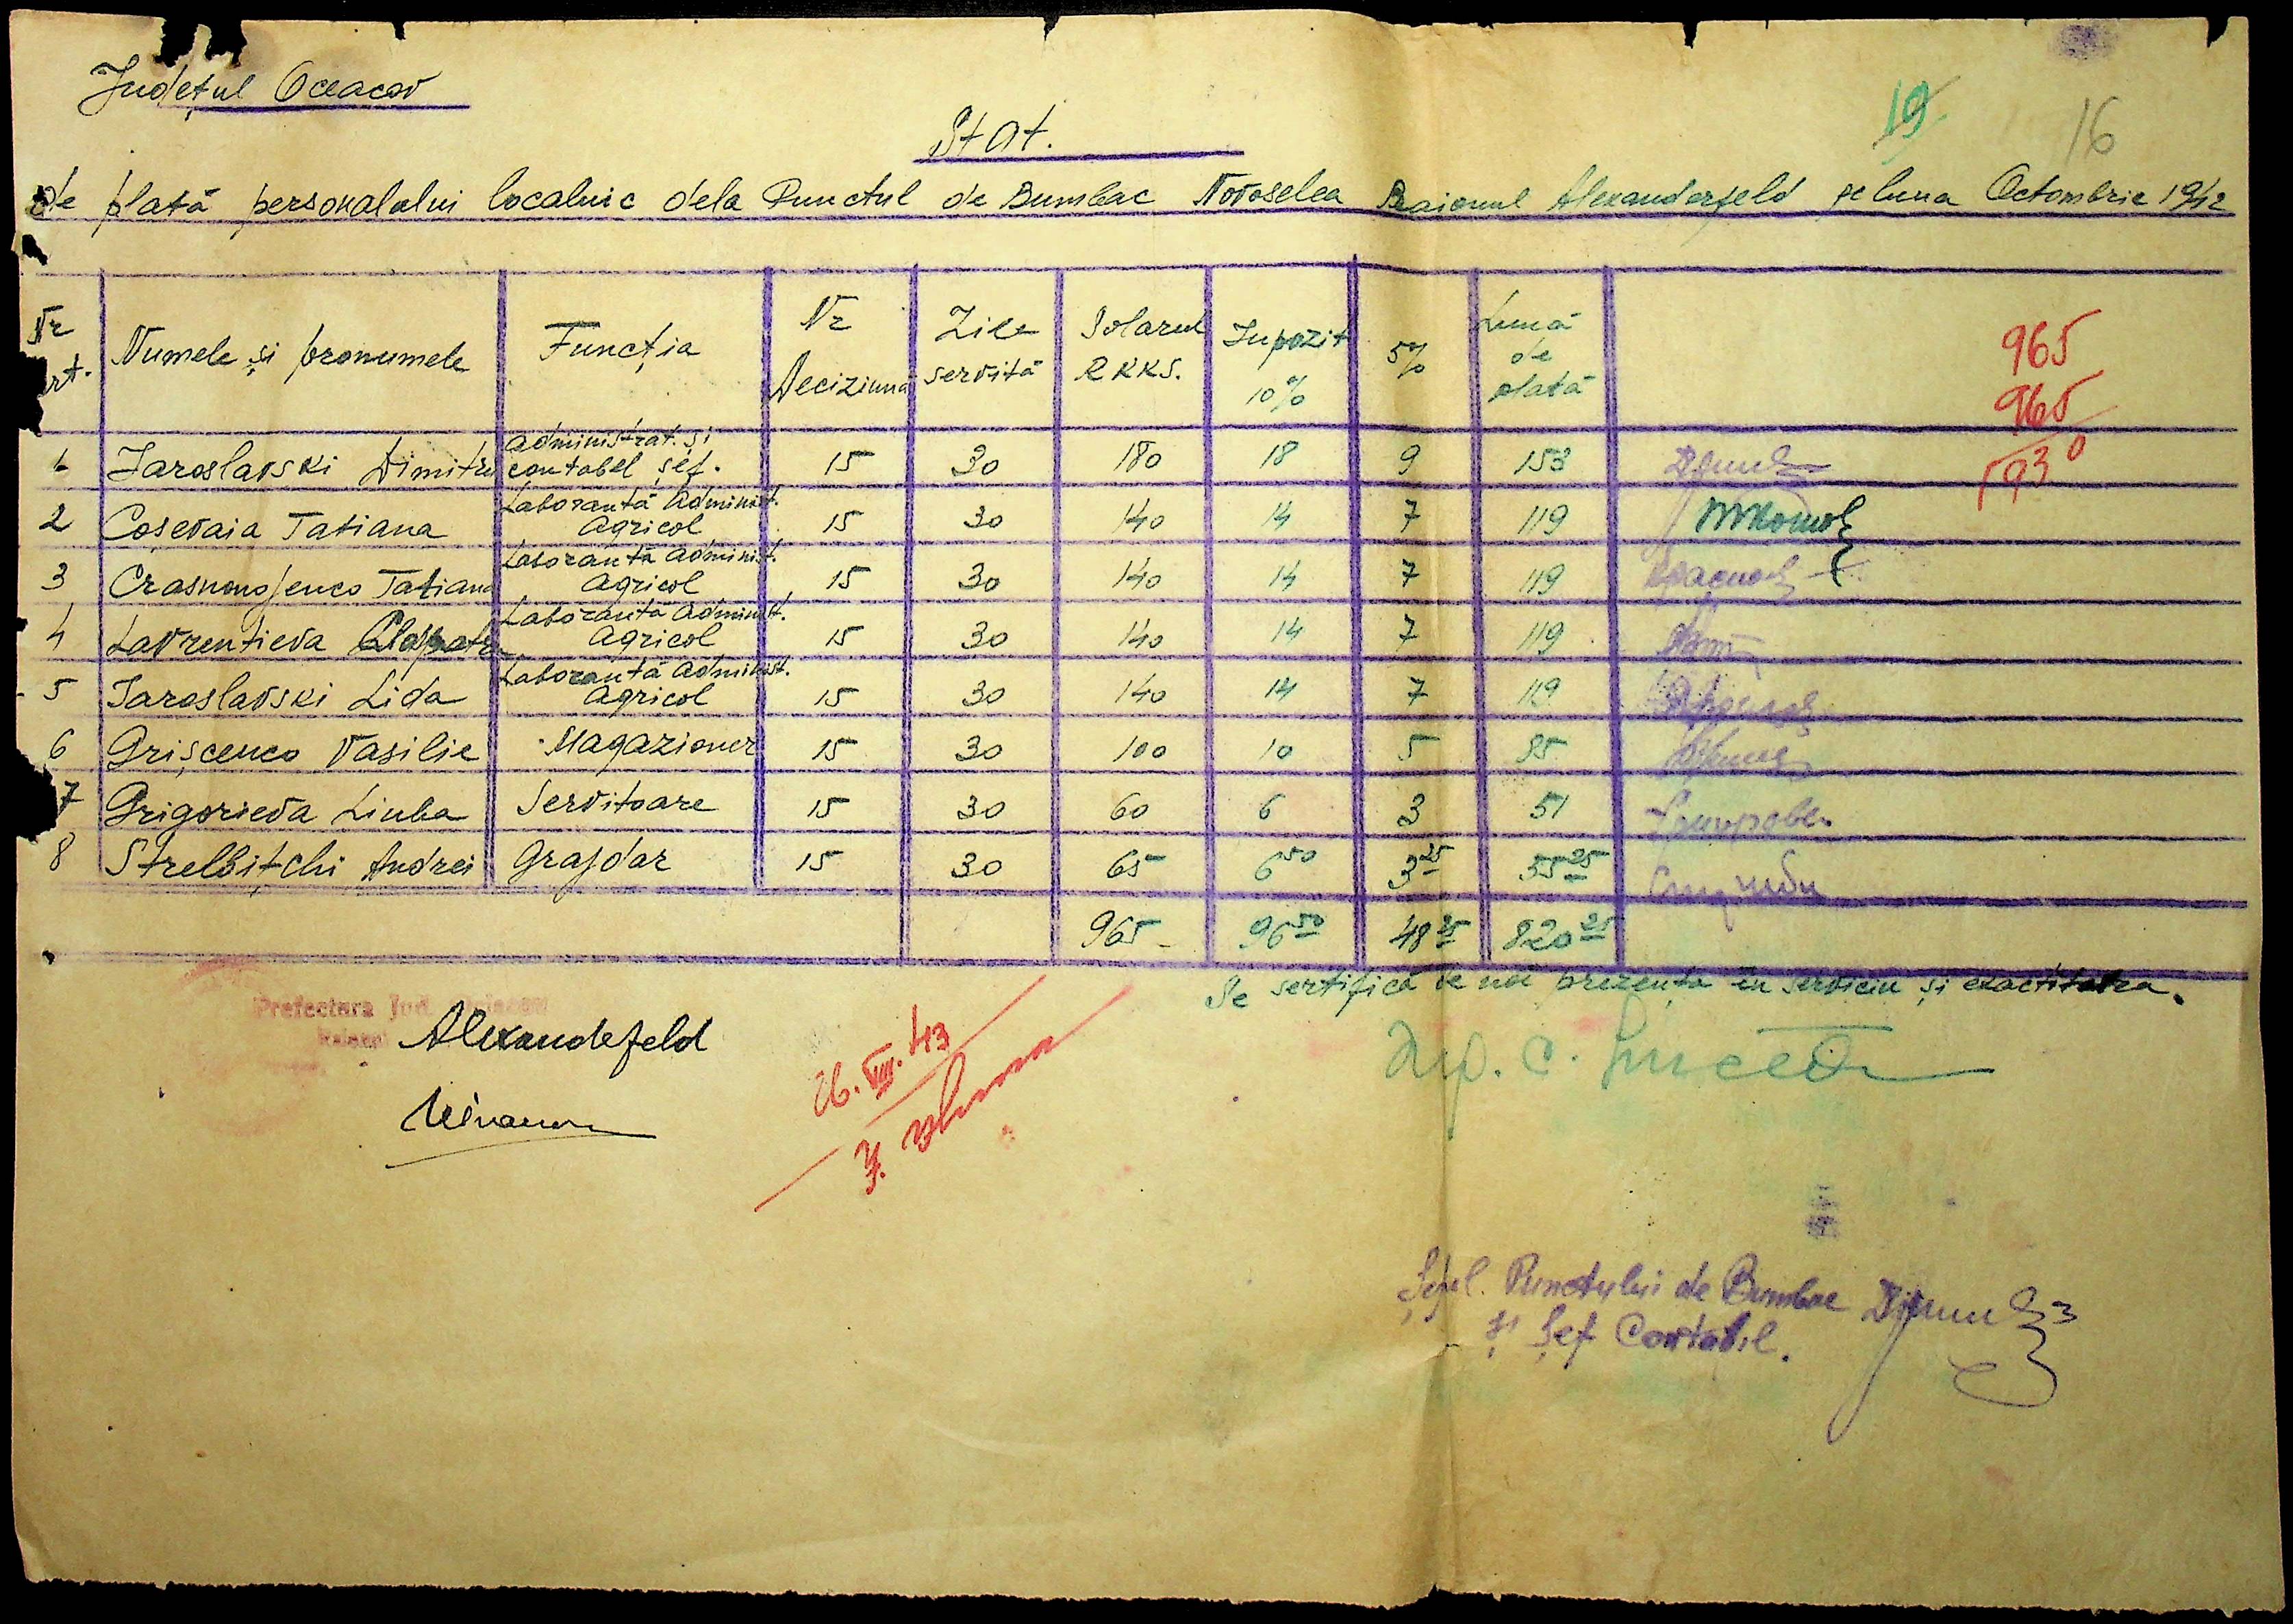 Județul Oceacov
19
16
Stat.
de plată personalului localnic dela Punctul de Bumbac Novoselea Raionul Alexanderfeld pe luna Octombrie 1942
Nr crt. Numele și pronumele Funcția Nr Deciziunei Zile servită Solarul RKKS. Impozit 10% 5% Sumă de plată
965
965
1930
1 Iaroslavski Dimitru Administrat. și contabel șef. 15 30 180 18 9 153
2 Coșevaia Tatiana Laborantă Administ. Agricol 15 30 140 14 7 119
3 Crasnonojenco Tatiana Laborantă Administ. Agricol 15 30 140 14 7 119
4 Lavrentieva Laborantă Administ. Agricol 15 30 140 14 7 119
5 Iaroslavski Lida Laborantă Administ. Agricol 15 30 140 14 7 119
6 Grișcenco Vasilie Magazioner 15 30 100 10 5 85
7 Grigorieva Liuba Servitoare 15 30 60 6 3 51
8 Strelbițchi Andrei Grajdar 15 30 65 6 50 3 25 55 25
965 - 96 50 48 25 820 25
Se sertifică de noi prezența în serviciu și exactitatea.
Prefectura Jud.
Alexandefeld
26.VIII.43
Șeful. Punctului de Bumbac
și Șef Contabil.